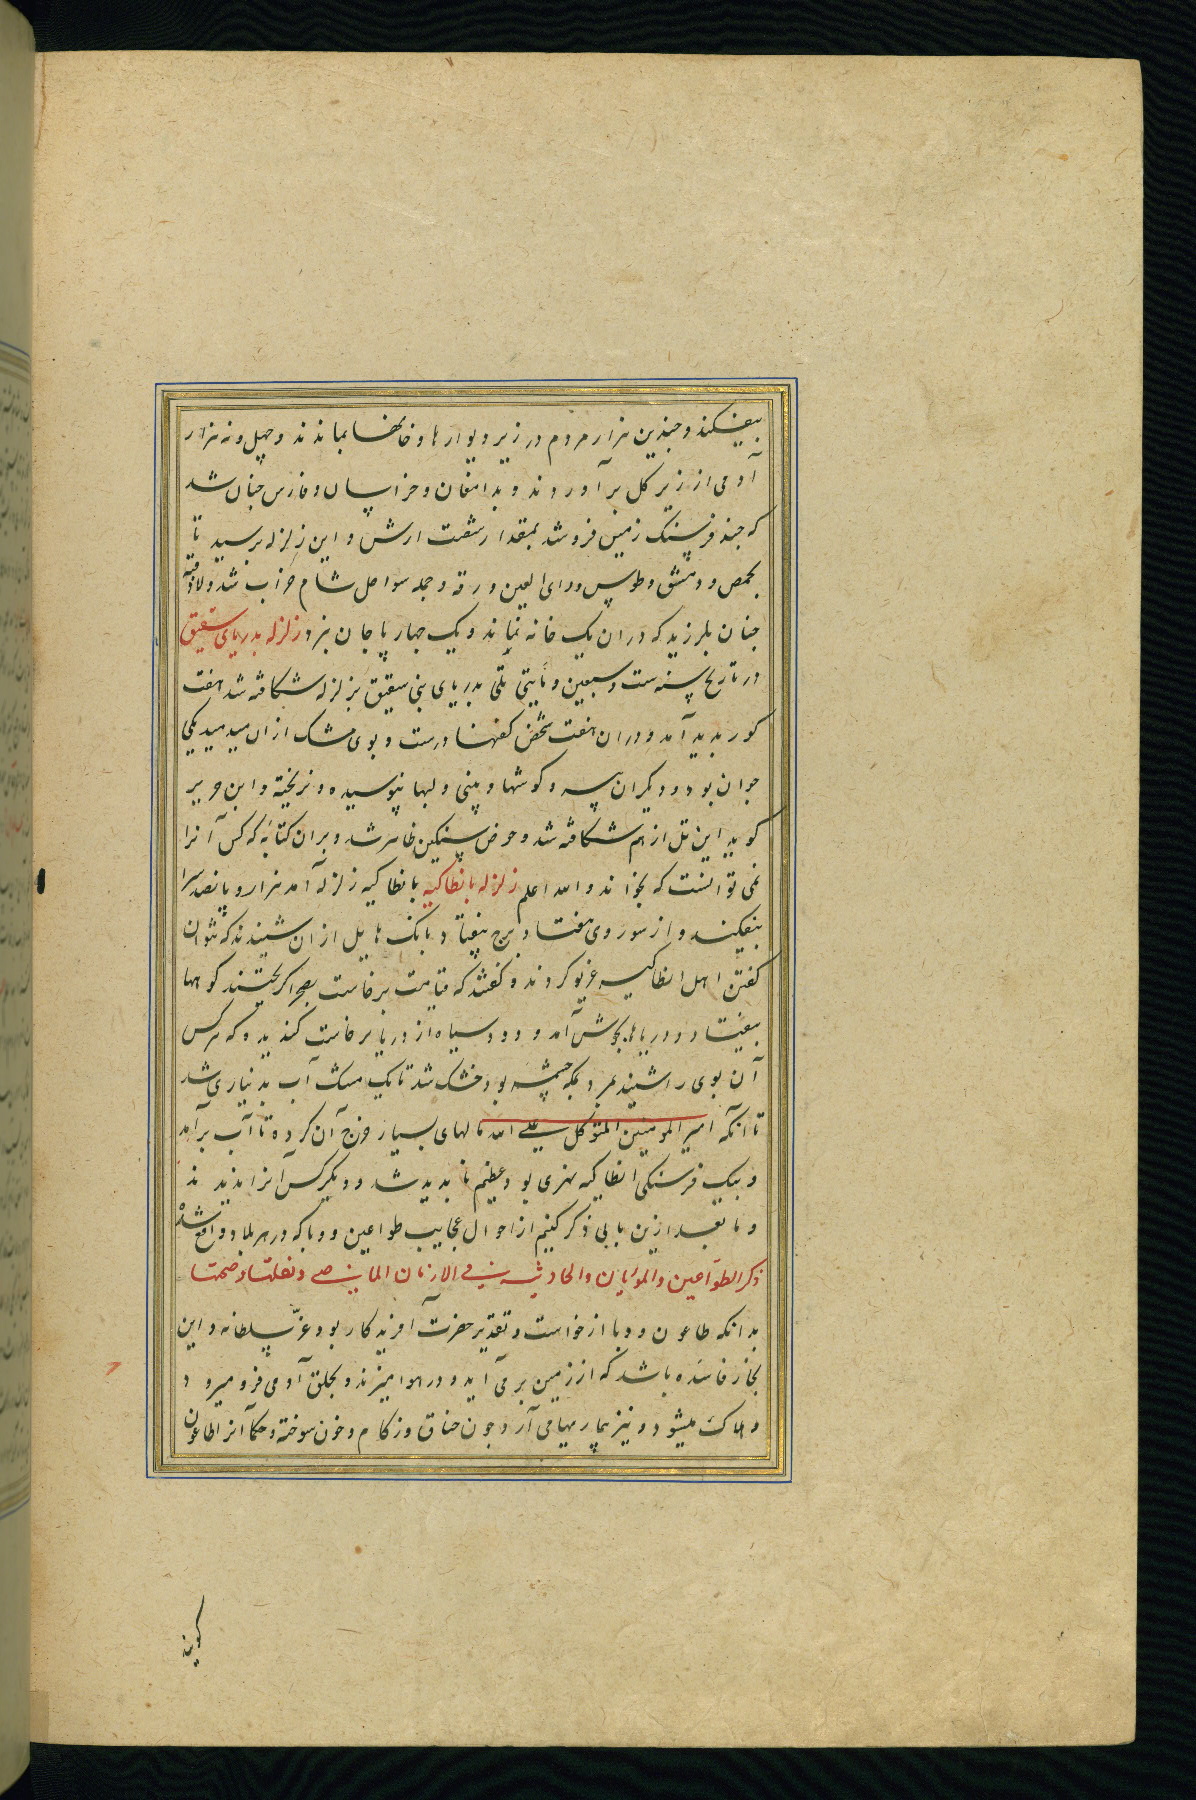 بیفکند و چندین هزار مردم در زیر دیوارها و خانها بماندند و چهل و نه هزار
آدمی از زیر کل برآوردند و بدامغان و خراسان و فارس چنان شد
که چند فرسنک زمین فرو شد بمقدار شصت ارش و این زلزله برسید تا
بحمص و دمشق و طوس و راس العین و رقه و جمله سواحل شام خراب شد و لاذقیه
چنان بلرزید که دران یک خانه نماند و یک چهار پا جان نبرد زلزله بدریای شقیق
در تاریخ سنه ست و سبعین و مایتی تلی بدریای بنی شقیق بزلزله شکافته شد هفت
کور بدید آمد و دران هفت شخص کفنها درست و بوی مشک ازان میدمید یکی
جوان بود و دیکران پیر و کوشها و بینی و لبها نپوسیده و نریخته و ابن جریر
کوید این تل از هم شکافته شد و حوض سنکین ظاهر شد و بران کتابه که کس آنرا
نمی توانست که بخواند والله اعلم زلزله بانطاکیه بانطاکیه زلزله آمد هزار و پانصد سرا
بیفکند و از سور وی هفتاد برج بیفتاد بانک هایل ازان شنیدند که نتوان
کفتن اهل انطاکیه غریو کردند و کفتند که قیامت برخاست بصحرا کریختند کوهها
بیفتاد و دریاها بجوش آمد و دود سیاه از دریا برخاست کندیده که هرکس
آن بوی را شنید بمرد بمکه چشمه بود خشک شد تا یک مشک آب بدیناری شد
تا آنکه امیر المومنین المتوکل علی الله مالهای بسیار خرج آن کرده تا آب برآمد
و بیک فرسنکی انطاکیه نهری بود عظیم ناپدید شد و دیکر کس آنرا ندیدند
و ما بعد ازین بابی ذکر کنیم از احوال عجایب طواعین و وبا که در هر بلاد واقع شده
ذکر الطواعین والموتان والحادثه فی الازمان الماضی و نعلتها و ضمتها
بدانکه طاعون و وبا از خواست و تقدیر حضرت آفریدکار بود عز سلطانه و این
بخار فاسده باشد که از زمین برمی آید و در هوا میزند و بحلق آدمی فرو میرود
و هلاک میشود و نیز بیماریها می آرد چون خناق و زکام و خون سوخته و حکما آنرا طاعون
کویند